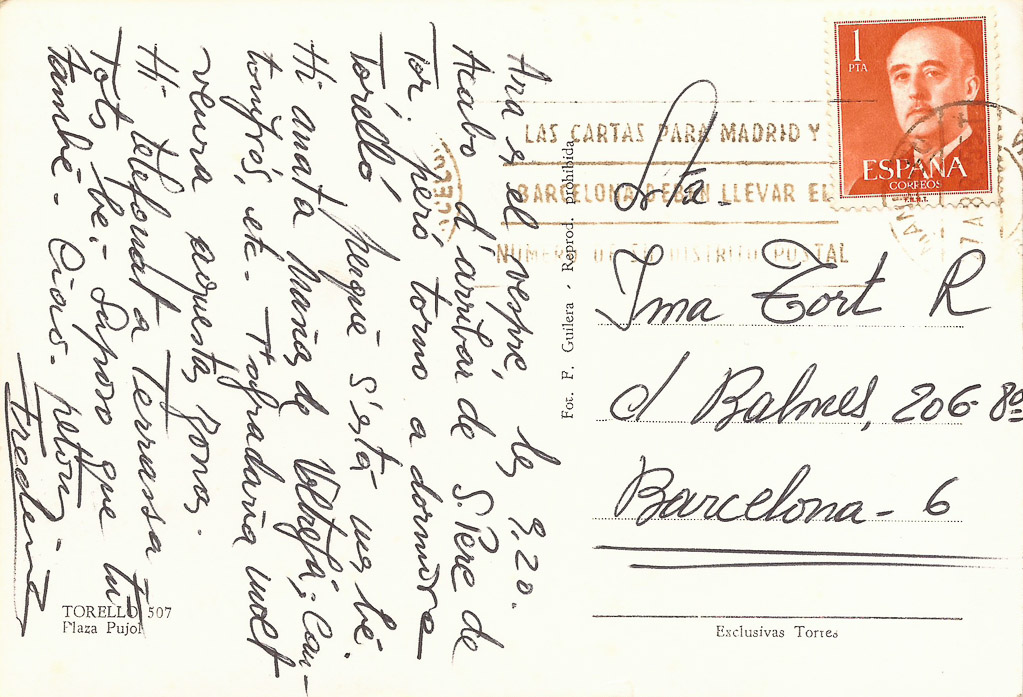 Ara es el vespre, les 9,20.
Acabo d'arribar de S. Pere de
Tor. però torno a dormir a
Torelló perquè s'està mes bé.
Hi anat a Mañá, de Voltregá; Cam-
tonfrés, etc. T'agradaria molt
veure aquesta zona.
Hi telefonat a Terrassa
Tots bé. Suposo que tu
també. Ciao. petons
TORELLO 507
Plaza Pujol
Fot. F. Guilera - Reprod. prohibida
LAS CARTAS PARA MADRID Y
BARCELONA DEBEN LLEVAR EL
NUMERO DE SU DISTRITO POSTAL
1
PTA
ESPAÑA
CORREOS
F.N.M.T.
Sta.
Ima Tort R
c/ Balmes, 206-8º
Barcelona - 6
Exclusivas Torres